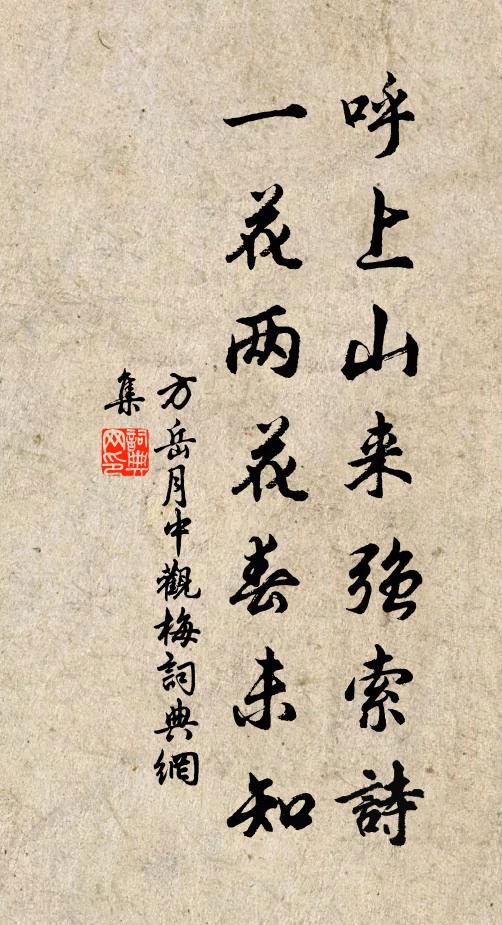 呼上山来强索詩
一花两花春未知
方岳月中觀梅詞典網
集
詞典
网印